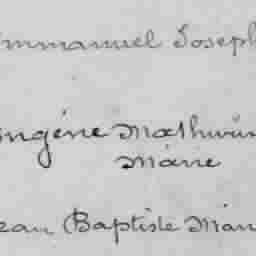 mmanuel Joseph
ngéne Mathurin
Marie
ean Baptiste Mari